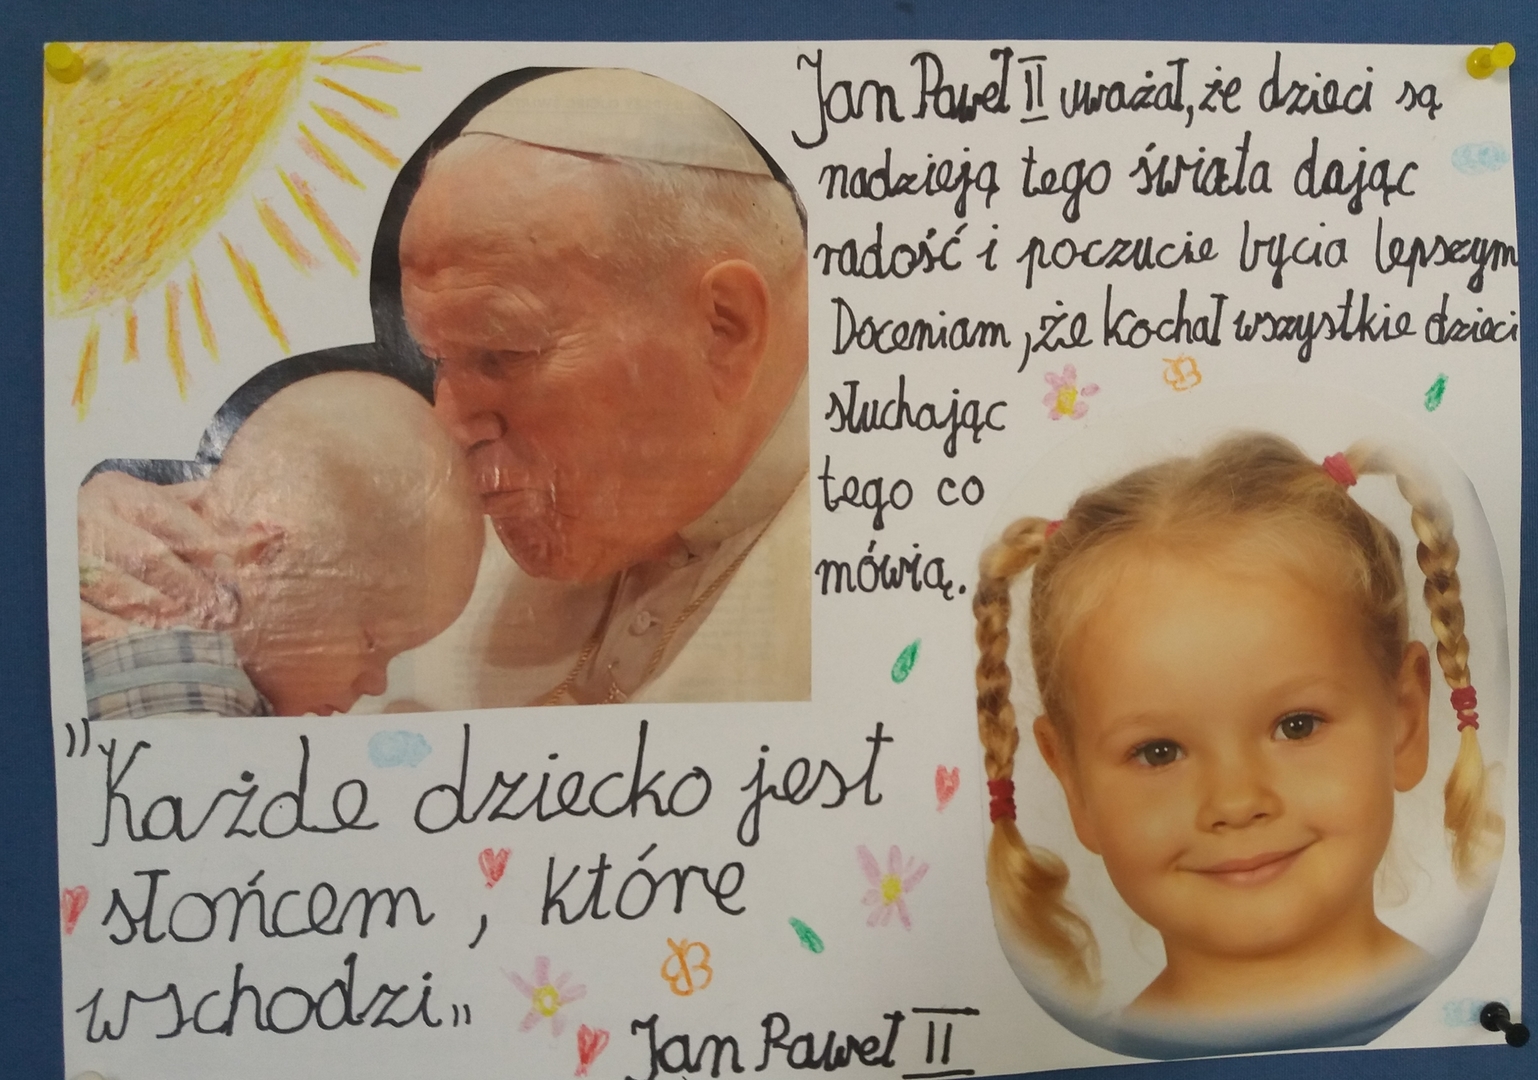 Jan Paweł II uważał, że dzieci są
nadzieją tego świata dając
radość i poczucie bycia lepszym
Doceniam, że kochał wszystkie dzieci
słuchając
tego co
mówią.
"Każde dziecko jest
słońcem, które
wschodzi„
Jan Paweł II